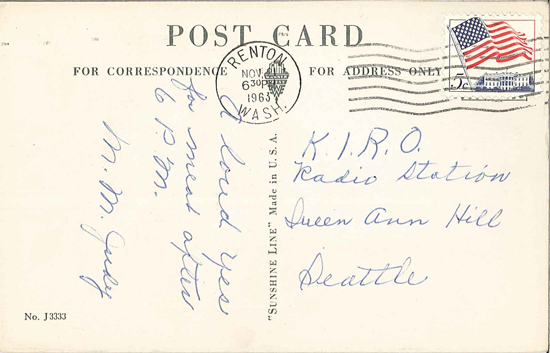 POST CARD
FOR CORRESPONDENCE
FOR ADDRESS ONLY
RENTON
NOV.
6 30P
1963
WASH.
5c
A loud yes
for meat after
6 P.M.
M. M. Judy
"SUNSHINE LINE" Made in U.S.A.
K.I.R.O.
Radio Station
Queen Ann Hill
Seattle
No. J3333